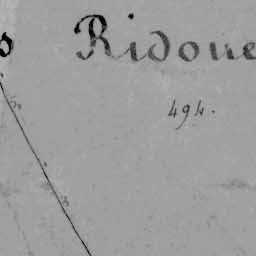 Ridoue
494.